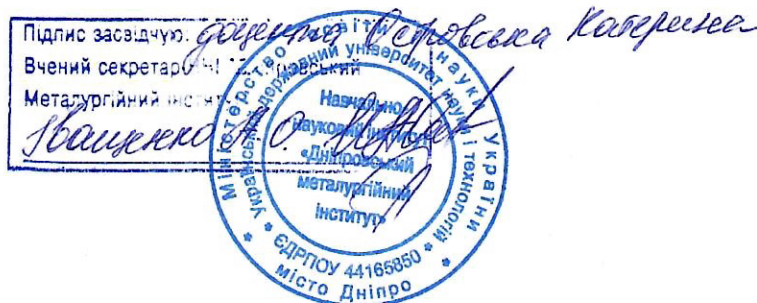 Підпис засвідчую: доцента Островська Катерина
Вчений секретар
Металургійний
Іващенко
Міністерство освіти і науки України
Український державний університет науки і технологій
Навчально
науковий інститут
«Дніпровський
металургійний
інститут»
ЄДРПОУ 44165850
місто Дніпро